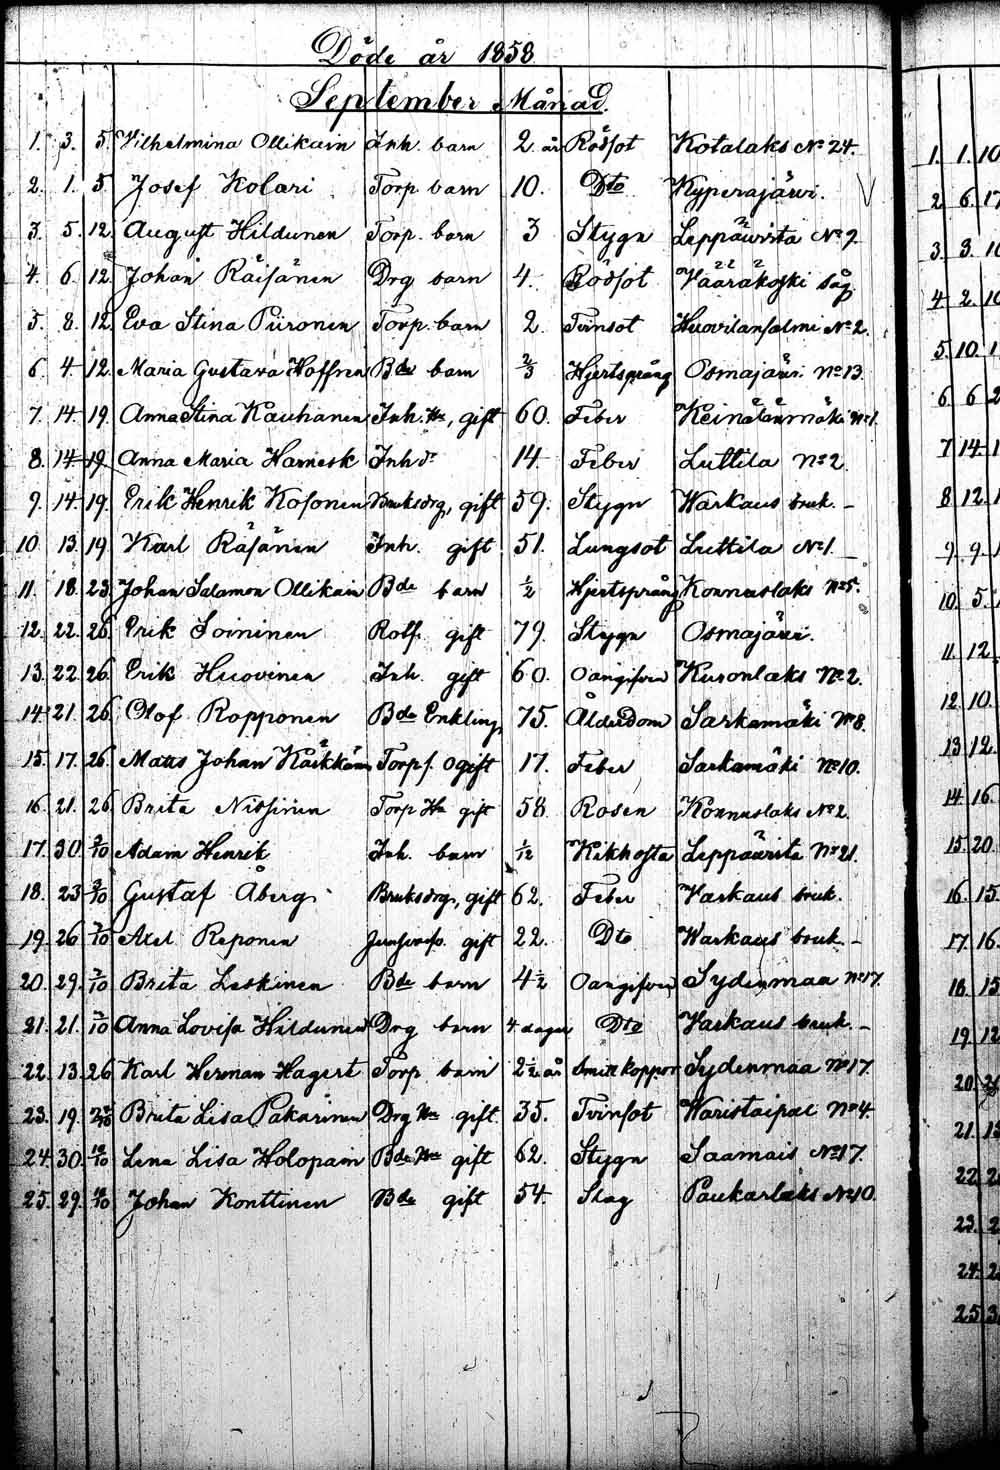 Döde år 1858.
September Månad.
1. 3. 5. Vilhelmina Ollikain Inh. barn 2. år Rödsot Kotalaks No 24.
2. 1. 5 Josef Kolari Torp barn 10. Dto Kyperäjärvi.
3. 5. 12. August Hildunen Torp. barn 3 Stygn Leppävirta No 9.
4. 6. 12. Johan Räisänen Drg barn 4. Rödsot Wääräkoski såg
5. 8. 12. Eva Stina Piironen Torp. barn 2. Tvinsot Huovilansalmi No 2.
6. 4. 12. Maria Gustava Hoffren Bde barn 2/3 Hjertsprång Osmajärvi No 13.
7. 14. 19. Anna Stina Kauhanen Inh. Hu, gift 60. Feber Keinälänmäki No 1.
8. 14 19. Anna Maria Harnesk Inh dr 14. Feber Luttila No 2.
9. 14. 19. Erik Henrik Kosonen Bruksdrg, gift 59. Stygn Warkaus bruk.
10 13 19. Karl Räsänen Inh. gift 51. Lungsot Luttila No 1.
11. 18. 23. Johan Salamon Ollikain Bde barn 1/2 Hjertsprång Konnuslaks No 5.
12. 22. 26. Erik Soininen Rotf. gift 79. Stygn Osmajärvi.
13. 22. 26. Erik Huovinen Inh. gift 60. Oangifven Kuronlaks No 2.
14 21. 26. Olof Ropponen Bde Enkling 75. Ålderdom Sarkamäki No 8.
15. 17. 26. Matts Johan Käikkäin Torpf. Ogift 17. Feber Sarkamäki No 10.
16. 21. 26 Brita Nissinen Torp Hu gift 58. Rosen Konnuslaks No 2.
17. 30 3/10 Adam Henrik Inh. barn 1/12 Kikhosta Leppävirta No 21.
18. 23 3/10 Gustaf Åberg Bruksdrg, gift 62. Feber Varkaus bruk.
19. 26 3/10 Axel Reponen gift 22. Dto Warkaus bruk.
20. 29. 3/10 Brita Leskinen Bde barn 4 1/2 Oangifven Sydenmaa No 17.
21. 21. 3/10 Anna Lovisa Hildunen Drg barn 4 dagar Dto Varkaus bruk.
22. 13. 26 Karl Herman Hagert Torp barn 2 1/2 år Smittkoppor Sydenmaa No 17.
23. 19. Brita Lisa Pakarinen Drg Hu gift 35. Tvinsot Waristaipal No 4.
24. 30. 10/10 Lena Lisa Holopain Bde Hu gift 62. Stygn Saamais No 17.
25. 29. 10/10 Johan Konttinen Bde gift 54. Slag Paukarlaks No 10.
1. 1. 10
2 6. 17
3 3. 10
4 2. 10
5. 10. 1
6. 6 2
7 14. 1
8 12. 1
9. 9. 1
10. 5.
11. 12
12. 10.
13. 12.
14 16.
15. 20.
16. 15.
17. 16.
18. 15
19. 12
20.
21. 15
22. 2
23. 2
24. 2
25 3